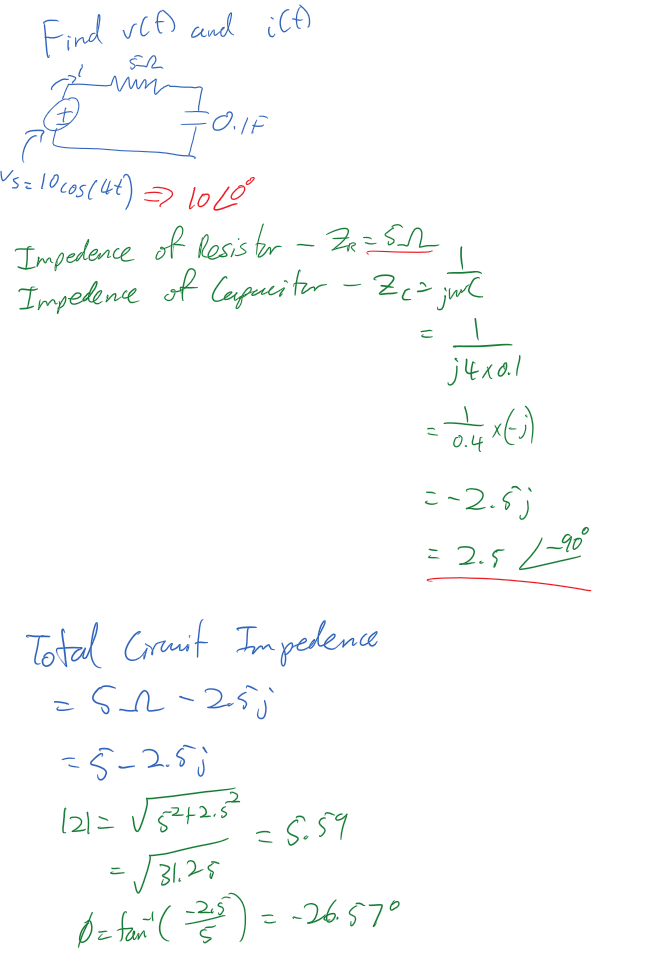 Find v(t) and i(t)
5Ω
i
±
0.1F
Vs = 10cos(4t) ⇒ 10∠0°
Impedence of Resistor - ZR = 5Ω
Impedence of Capacitor - ZC = 1/jωC
= 1/j4×0.1
= 1/0.4 ×(-j)
= -2.5j
= 2.5 ∠-90°
Total Circuit Impedence
= 5Ω - 2.5j
= 5 - 2.5j
|z| = √5²+2.5² = 5.59
= √31.25
ϕ = tan⁻¹(-2.5/5) = -26.57°